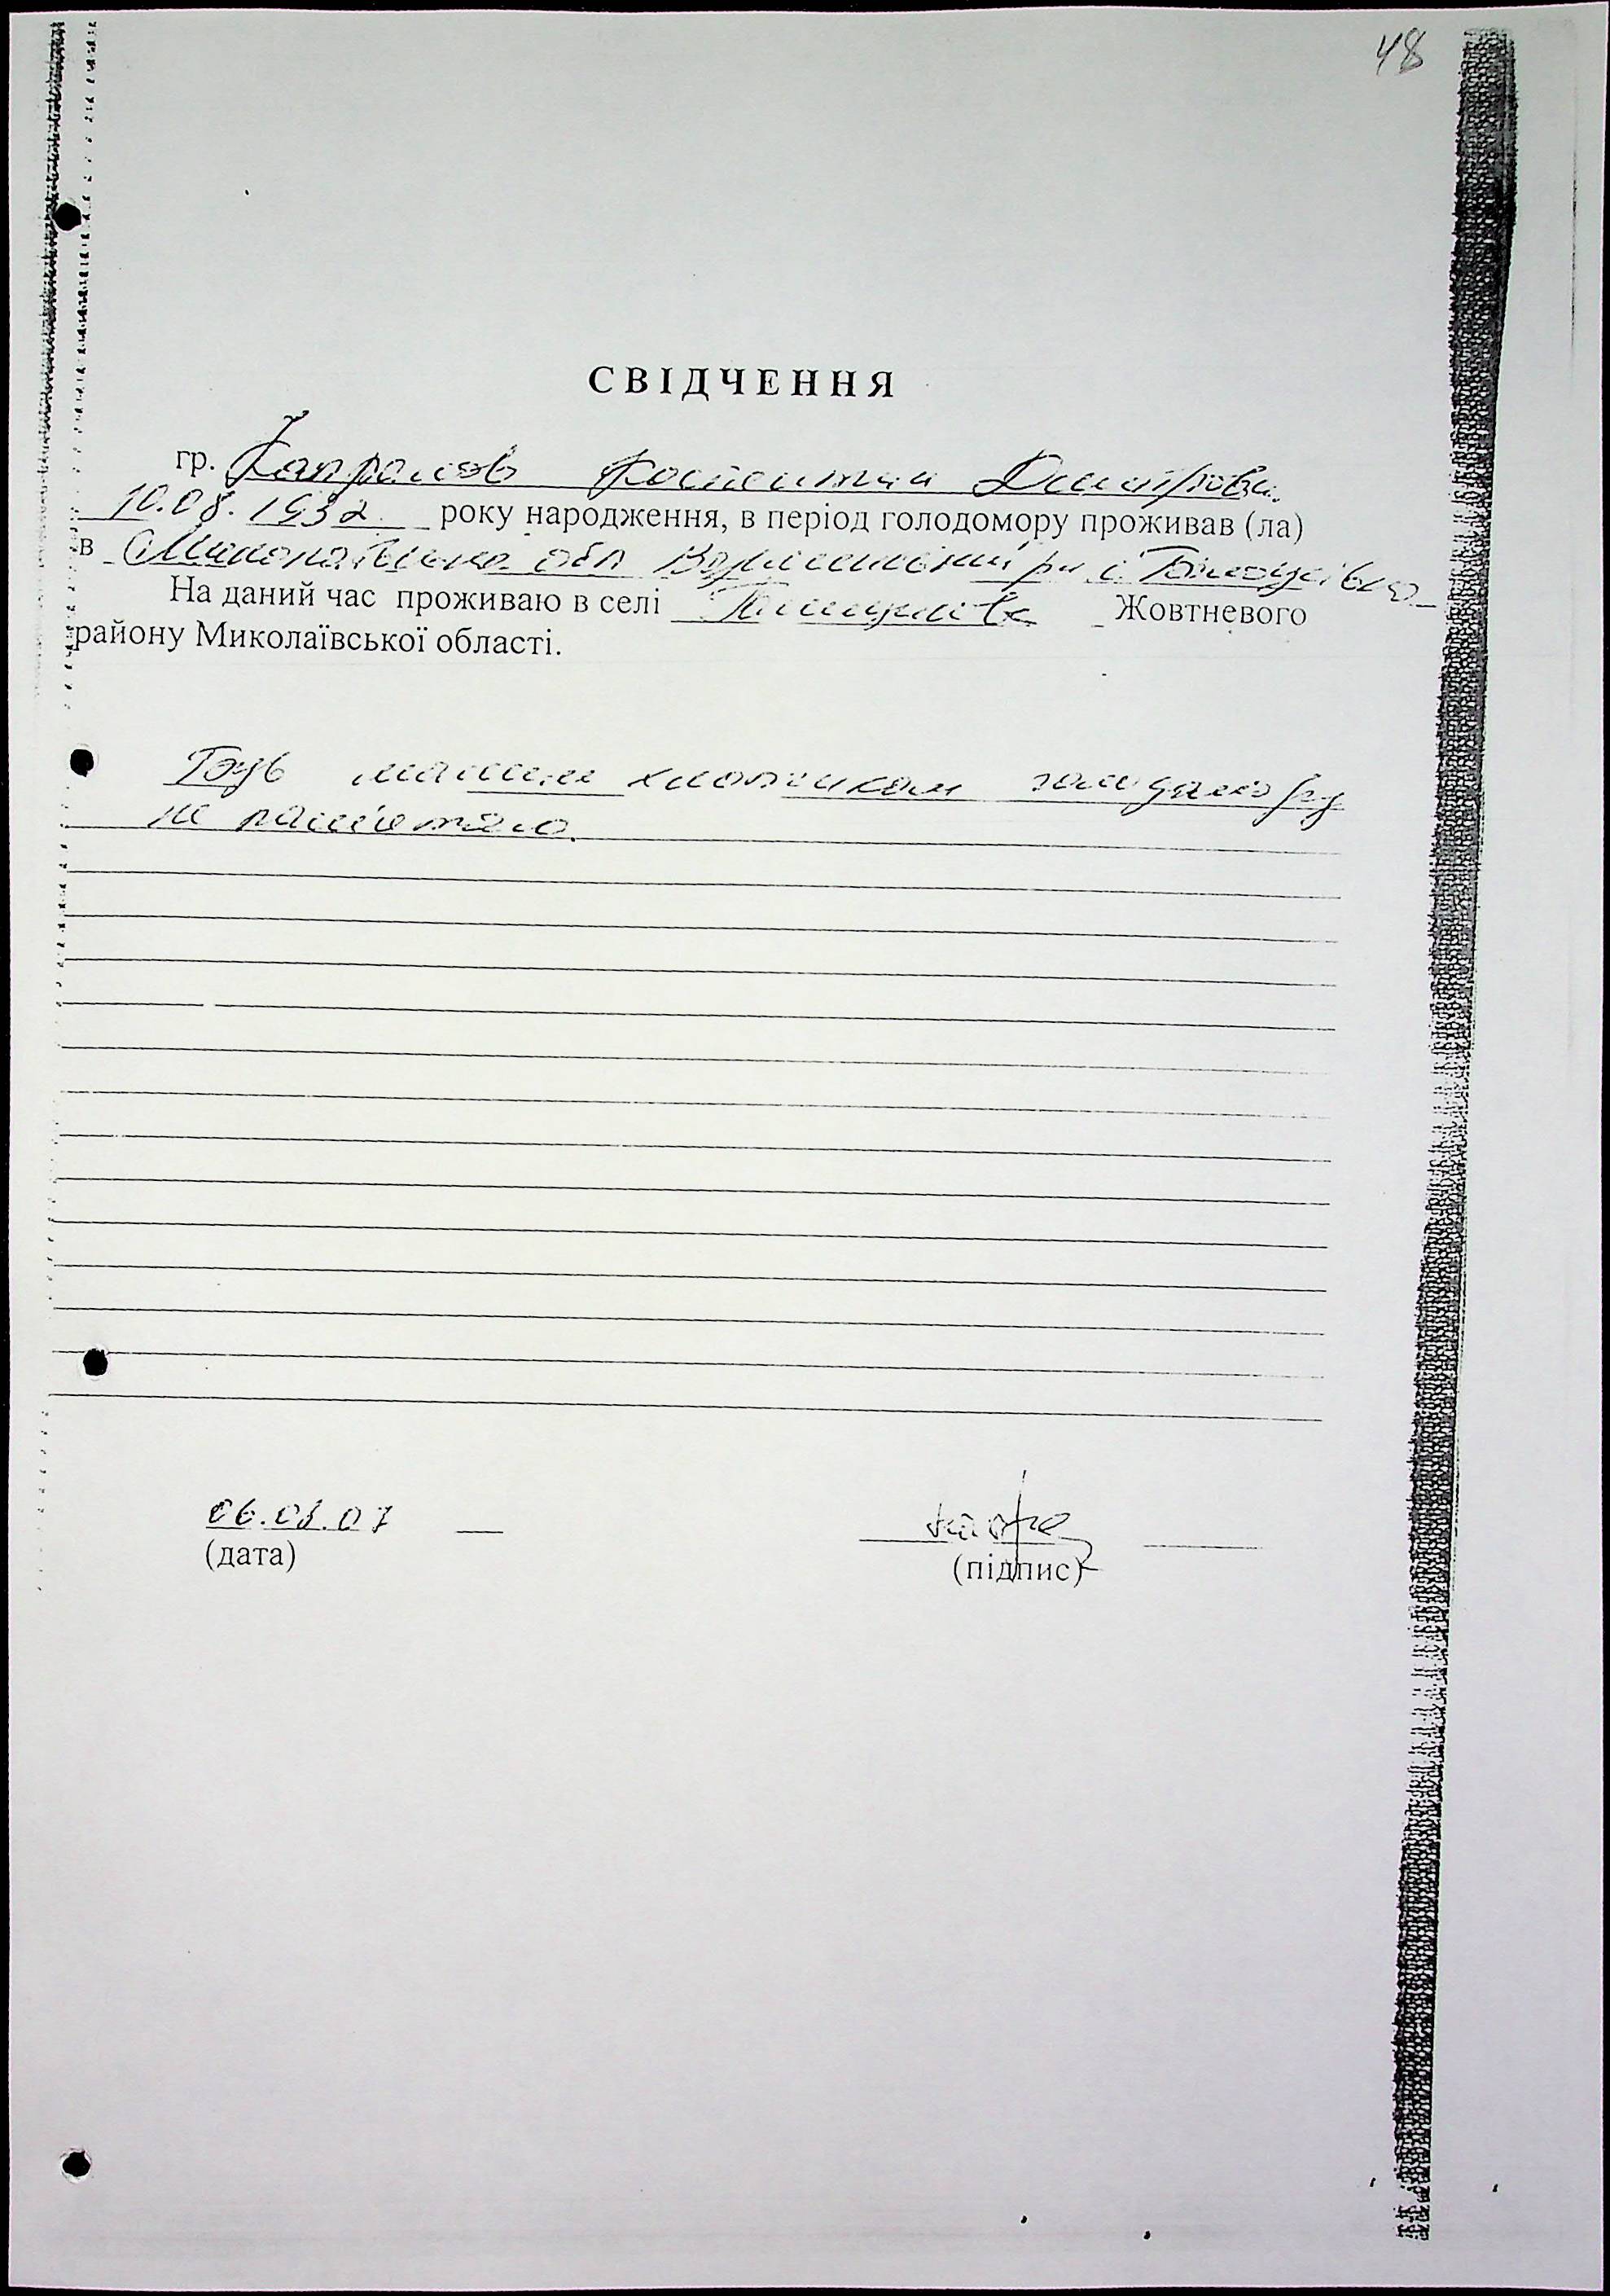 48
СВІДЧЕННЯ
гр. Капралов Костянтин Дмитрови.
10.08.1932 року народження, в період голодомору проживав (ла)
в Миколаївська обл
На даний час проживаю в селі Жовтневого
району Миколаївської області.
Був малим хлопчиком голодомору
не пам'ятаю.
06.03.07
(дата)
(підпис)